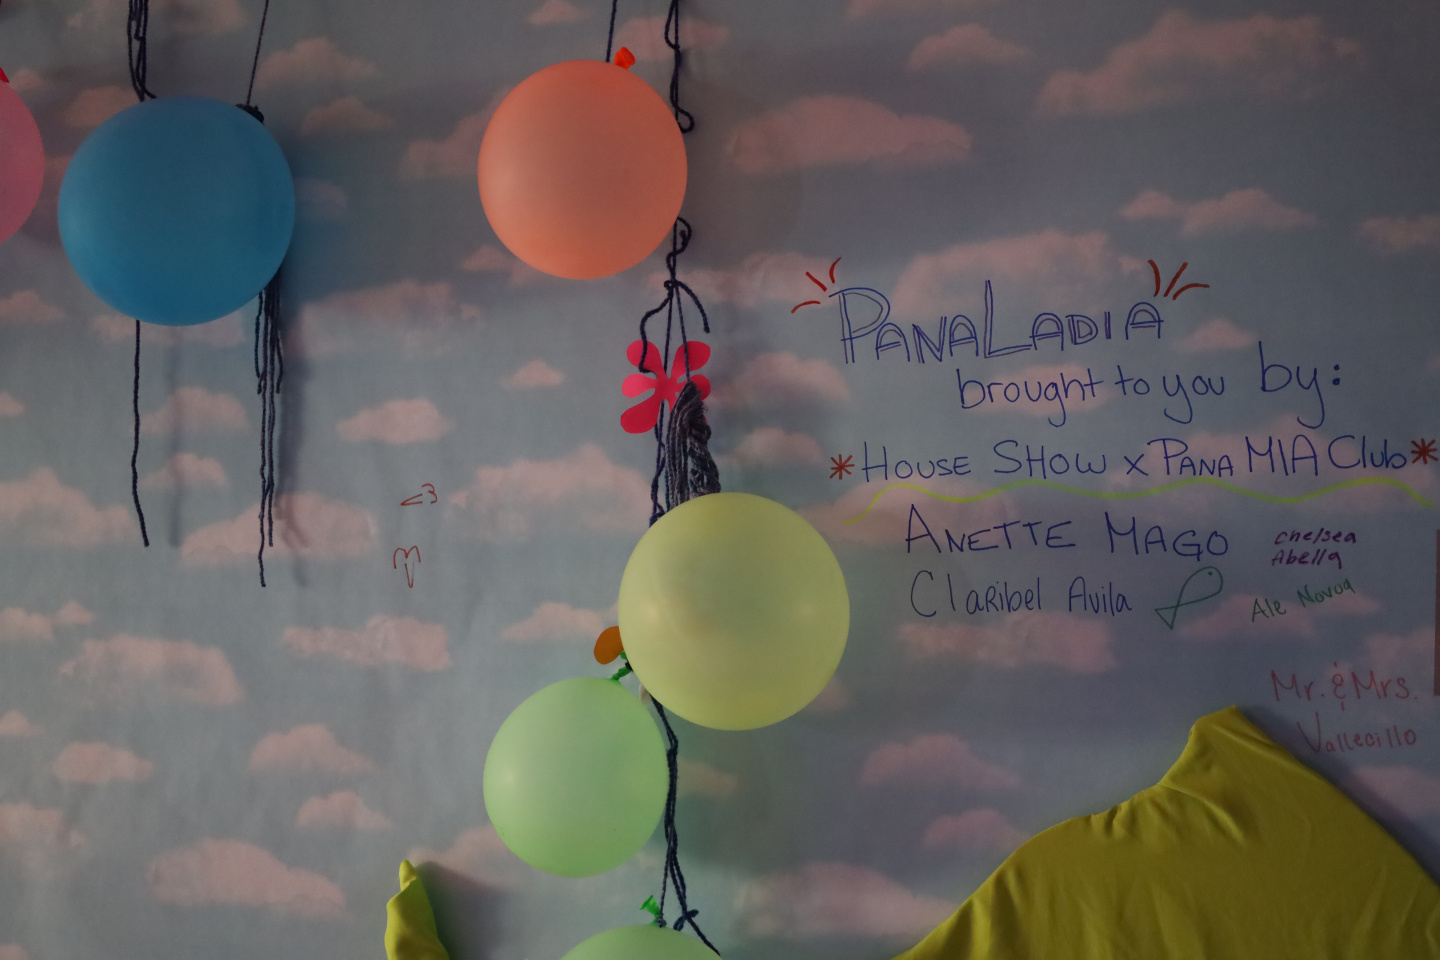 PANALADIA
brought to you by:
*HOUSE SHOW x PANA MIA Club*
ANETTE MAGO
chelsea
Abella
Claribel Avila
Ale Novoa
Mr. & Mrs.
Vallecillo
<3